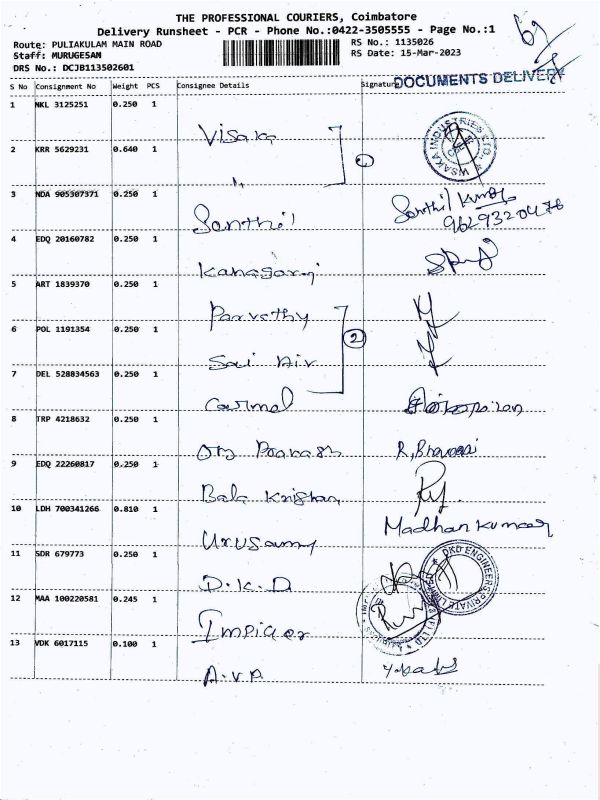 THE PROFESSIONAL COURIERS, Coimbatore
Delivery Runsheet - PCR - Phone No.:0422-3505555 - Page No.:1
Route: PULIAKULAM MAIN ROAD
Staff: MURUGESAN
DRS No.: DCJB113502601
RS No.: 1135026
RS Date: 15-Mar-2023
DOCUMENTS DELIVERY
S No Consignment No Weight PCS Consignee Details Signature
1 NKL 3125251 0.250 1 Visaka
2 KRR 5629231 0.640 1 " 1
WISAKA INDUSTRIES LTD.
3 NDA 905307371 0.250 1 Santhil Santhil Kumar
9629320476
4 EDQ 20160782 0.250 1
5 ART 1839370 0.250 1 Parvathy
6 POL 1191354 0.250 1 Sai Air 2
7 DEL 528834563 0.250 1 Carmal
8 TRP 4218632 0.250 1 R, Bhavani
9 EDQ 22260817 0.250 1 Bala Krishan
10 LDH 700341266 0.810 1 Madhan kumaar
11 SDR 679773 0.250 1 D.K.D
DKD ENGINEERS PRIVATE LIMITED
12 MAA 100220581 0.245 1
13 VDK 6017115 0.100 1 A.V.A